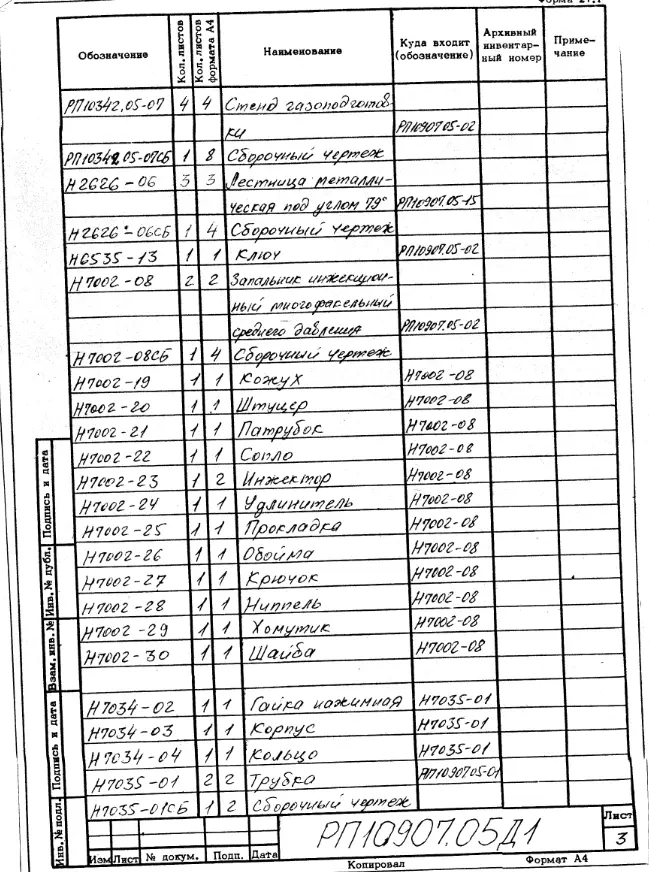 Форма 2.1
Обозначение Кол. листов Кол. листов формата А4 Наименование Куда входит (обозначение) Архивный инвентарный номер Приме-чание
РП10342.05-07 4 4 Стенд газоподготов-
ки РП10907.05-02
РП10342.05-07СБ 1 8 Сборочный чертеж
Н2626-06 3 3 Лестница металли-
ческая под углом 79° РП10907.05-15
Н2626-06СБ 1 4 Сборочный чертеж
Н6535-13 1 1 Ключ РП10907.05-02
Н7002-08 2 2 Запальник инжекцион-
ный многофакельный
среднего давления РП10907.05-02
Н7002-08СБ 1 4 Сборочный чертеж
Н7002-19 1 1 Кожух Н7002-08
Н7002-20 1 1 Штуцер Н7002-08
Н7002-21 1 1 Патрубок Н7002-08
Н7002-22 1 1 Сопло Н7002-08
Н7002-23 1 2 Инжектор Н7002-08
Н7002-24 1 1 Удлинитель Н7002-08
Н7002-25 1 1 Прокладка Н7002-08
Н7002-26 1 1 Обойма Н7002-08
Н7002-27 1 1 Крючок Н7002-08
Н7002-28 1 1 Ниппель Н7002-08
Н7002-29 1 1 Хомутик Н7002-08
Н7002-30 1 1 Шайба Н7002-08
Н7034-02 1 1 Гайка нажимная Н7035-01
Н7034-03 1 1 Корпус Н7035-01
Н7034-04 1 1 Кольцо Н7035-01
Н7035-01 2 2 Трубка РП10907.05-01
Н7035-01СБ 1 2 Сборочный чертеж
Подпись и дата
Инв. № дубл.
Взам. инв. №
Подпись и дата
Инв. № подл.
РП10907.05Д1
Лист
3
Изм Лист № докум. Подп. Дата
Копировал Формат А4